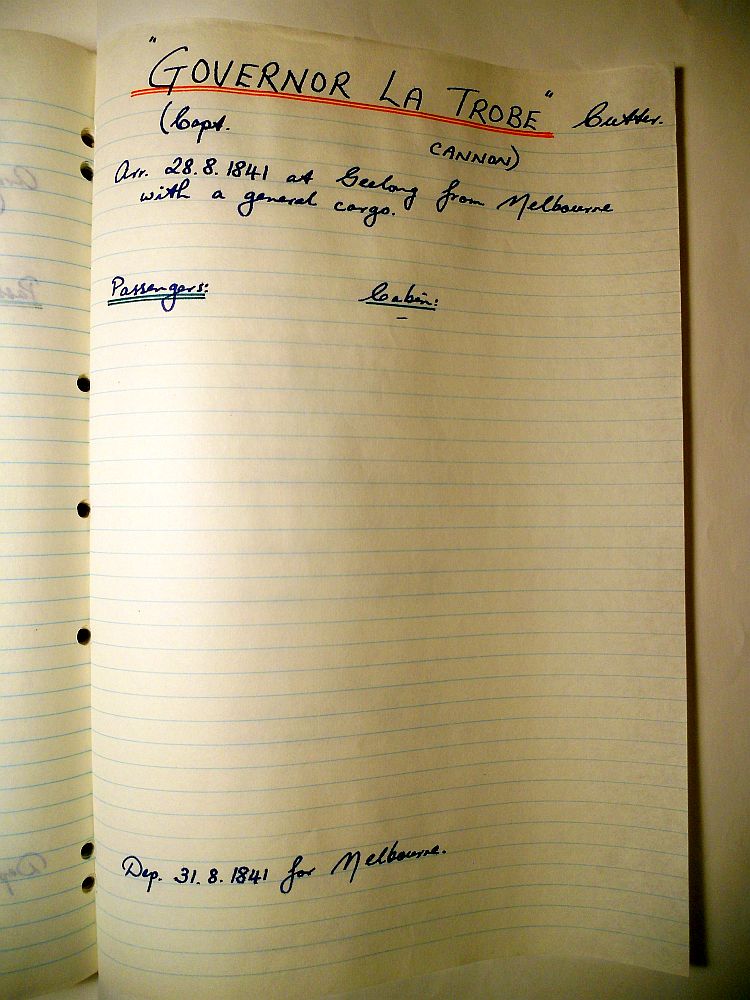 "GOVERNOR LA TROBE" Cutter.
(Capt. CANNON)
Arr. 28.8.1841 at Geelong from Melbourne
with a general cargo.
Passengers: Cabin:
–
Dep. 31.8.1841 for Melbourne.